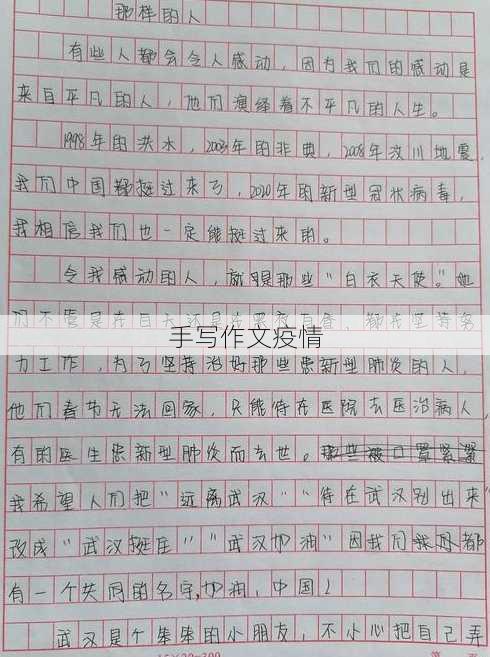 那样的人
有些人都会令人感动，因为我们的感动是
来自平凡的人，他们演绎着不平凡的人生。
1998年的洪水，2003年的非典，2008年汶川地震，
我们中国都挺过来了，2020年的新型冠状病毒，
我相信我们也一定能挺过来的。
令我感动的人，就是那些“白衣天使。”他
们不管是在白天还是在黑夜，都在坚持努
手写作文疫情
力工作，为了坚持治好那些患新型肺炎的人，
他们春节无法回家，只能待在医院去医治病人，
有的医生患新型肺炎而去世。那些被口罩紧
我希望人们把“远离武汉”“待在武汉别出来”
改成“武汉挺住”“武汉加油”因我们我们都
有一个共同的名字，加油，中国！
武汉是个笨笨的小朋友，不小心把自己弄
15×20=300
第 页